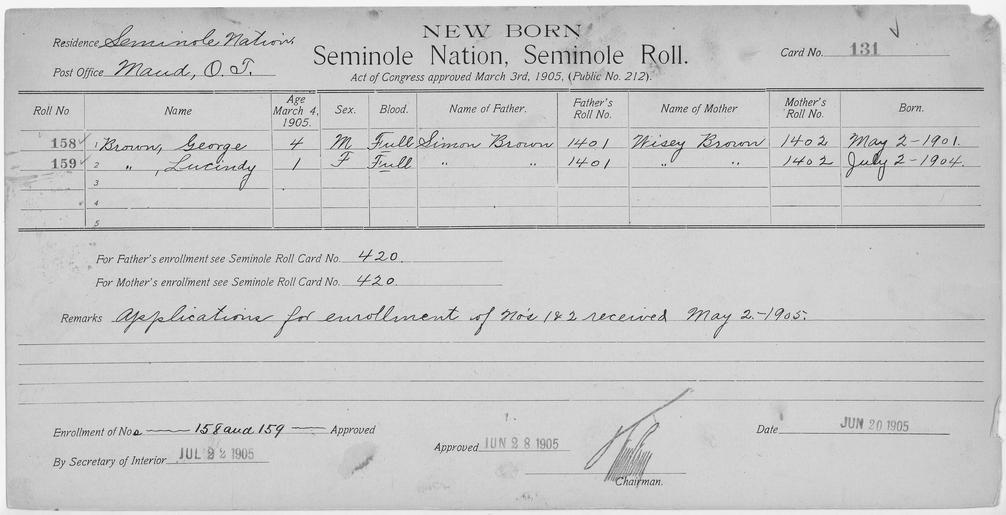 NEW BORN
Residence Seminole Nation.
Seminole Nation, Seminole Roll.
Card No. 131
Post Office Maud, O. T.
Act of Congress approved March 3rd, 1905, (Public No. 212).
Roll No Name Age March 4, 1905. Sex. Blood. Name of Father. Father's Roll No. Name of Mother Mother's Roll No. Born.
158 1 Brown, George 4 M Full Simon Brown 1401 Wisey Brown 1402 May 2-1901.
159 2 " , Lucindy 1 F Full " " 1401 " " 1402 July 2-1904.
3
4
5
For Father's enrollment see Seminole Roll Card No. 420.
For Mother's enrollment see Seminole Roll Card No. 420.
Remarks Applications for enrollment of No's 1&2 received May 2.-1905.
Enrollment of Nos 158 and 159 Approved
By Secretary of Interior JUL 22 1905
Approved JUN 28 1905
Chairman.
Date JUN 20 1905